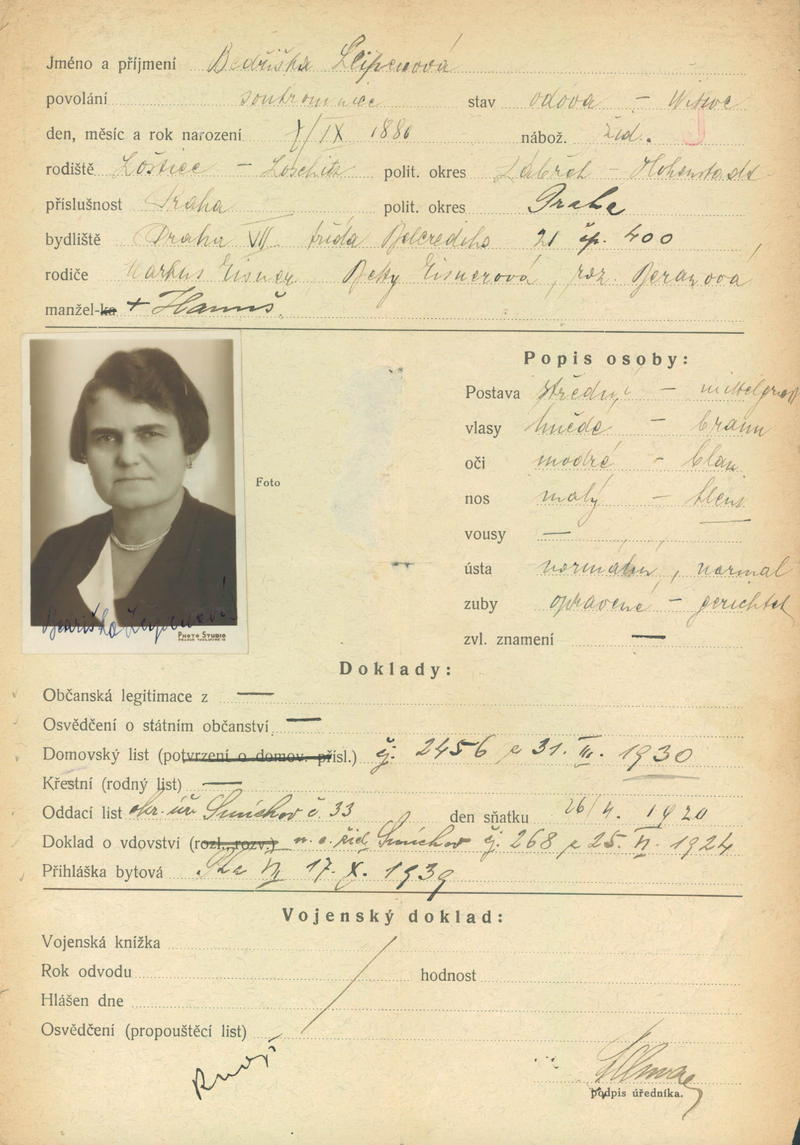 Jméno a příjmení Bedřiška
povolání soukromnice stav vdova – Witwe
den, měsíc a rok narození /IX 1880 nábož. žid. J
rodiště Loštice – Loschitz polit. okres Zábřeh – Hohenstadt
příslušnost Praha polit. okres Praha
bydliště Praha VII třída Belcrediho 21 čp. 400
rodiče Markus Eisner, Beky Eisnerová, roz. Beranová
manžel-ka + Hanuš
Popis osoby:
Postava střední – mittelgross
vlasy hnědé – braun
oči modré – blau
nos malý – klein
vousy —
ústa normální, normal
zuby opravené – gerichtet
zvl. znamení —
Foto
Bedřiška
Photo Studio
Doklady:
Občanská legitimace z —
Osvědčení o státním občanství —
Domovský list (potvrzení o domov. přísl.) čj. 2456 z 31. III. 1930
Křestní (rodný list) —
Oddací list okr. úř. Smíchov č. 33 den sňatku 26/4. 1920
Doklad o vdovství (rozl., rozv.) n. o. žid. Smíchov čj. 268 z 25. VI. 1924
Přihláška bytová VII 17. X. 1939
Vojenský doklad:
Vojenská knížka
Rok odvodu hodnost
Hlášen dne
Osvědčení (propouštěcí list)
podpis úředníka.